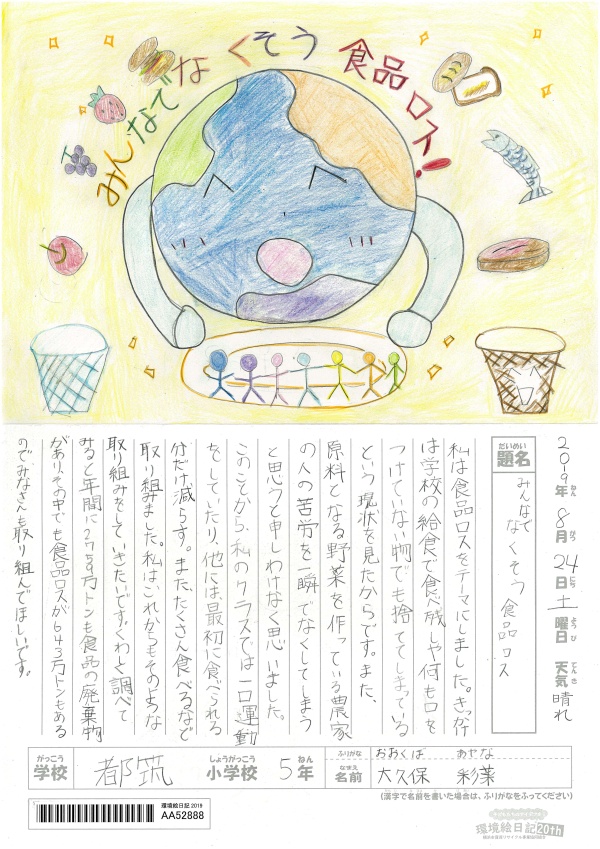 みんなでなくそう食品ロス!
2019年ねん8月がつ24日にち土曜日ようび天気てんき晴れ
だいめい
題名
みんなで
なくそう 食品ロス
私は食品ロスをテーマにしました。きっかけ
は学校の給食で食べ残しや何も口を
つけていない物でも捨ててしまっている
という現状を見たからです。また、
原料となる野菜を作っている農家
の人の苦労を一瞬でなくしてしまう
と思うと申しわけなく思いました。
このことから、私のクラスでは一口運動
をしていたり、他には最初に食べられる
分だけ減らす。また、たくさん食べるなど
取り組みました。私はこれからもそのような
取り組みをしていきたいです。くわしく調べて
みると年間に2759万トンも食品の廃棄物
があり、その中でも食品ロスが643万トンもある
のでみなさんも取り組んでほしいです。
がっこう
学校 都筑
しょうがっこう ねん
小学校 5年
ふりがな おおくぼ あやな
なまえ
名前 大久保 彩菜
(漢字で名前を書いた場合は、ふりがなをふってください)
環境絵日記2019
AA52888
環境絵日記20th